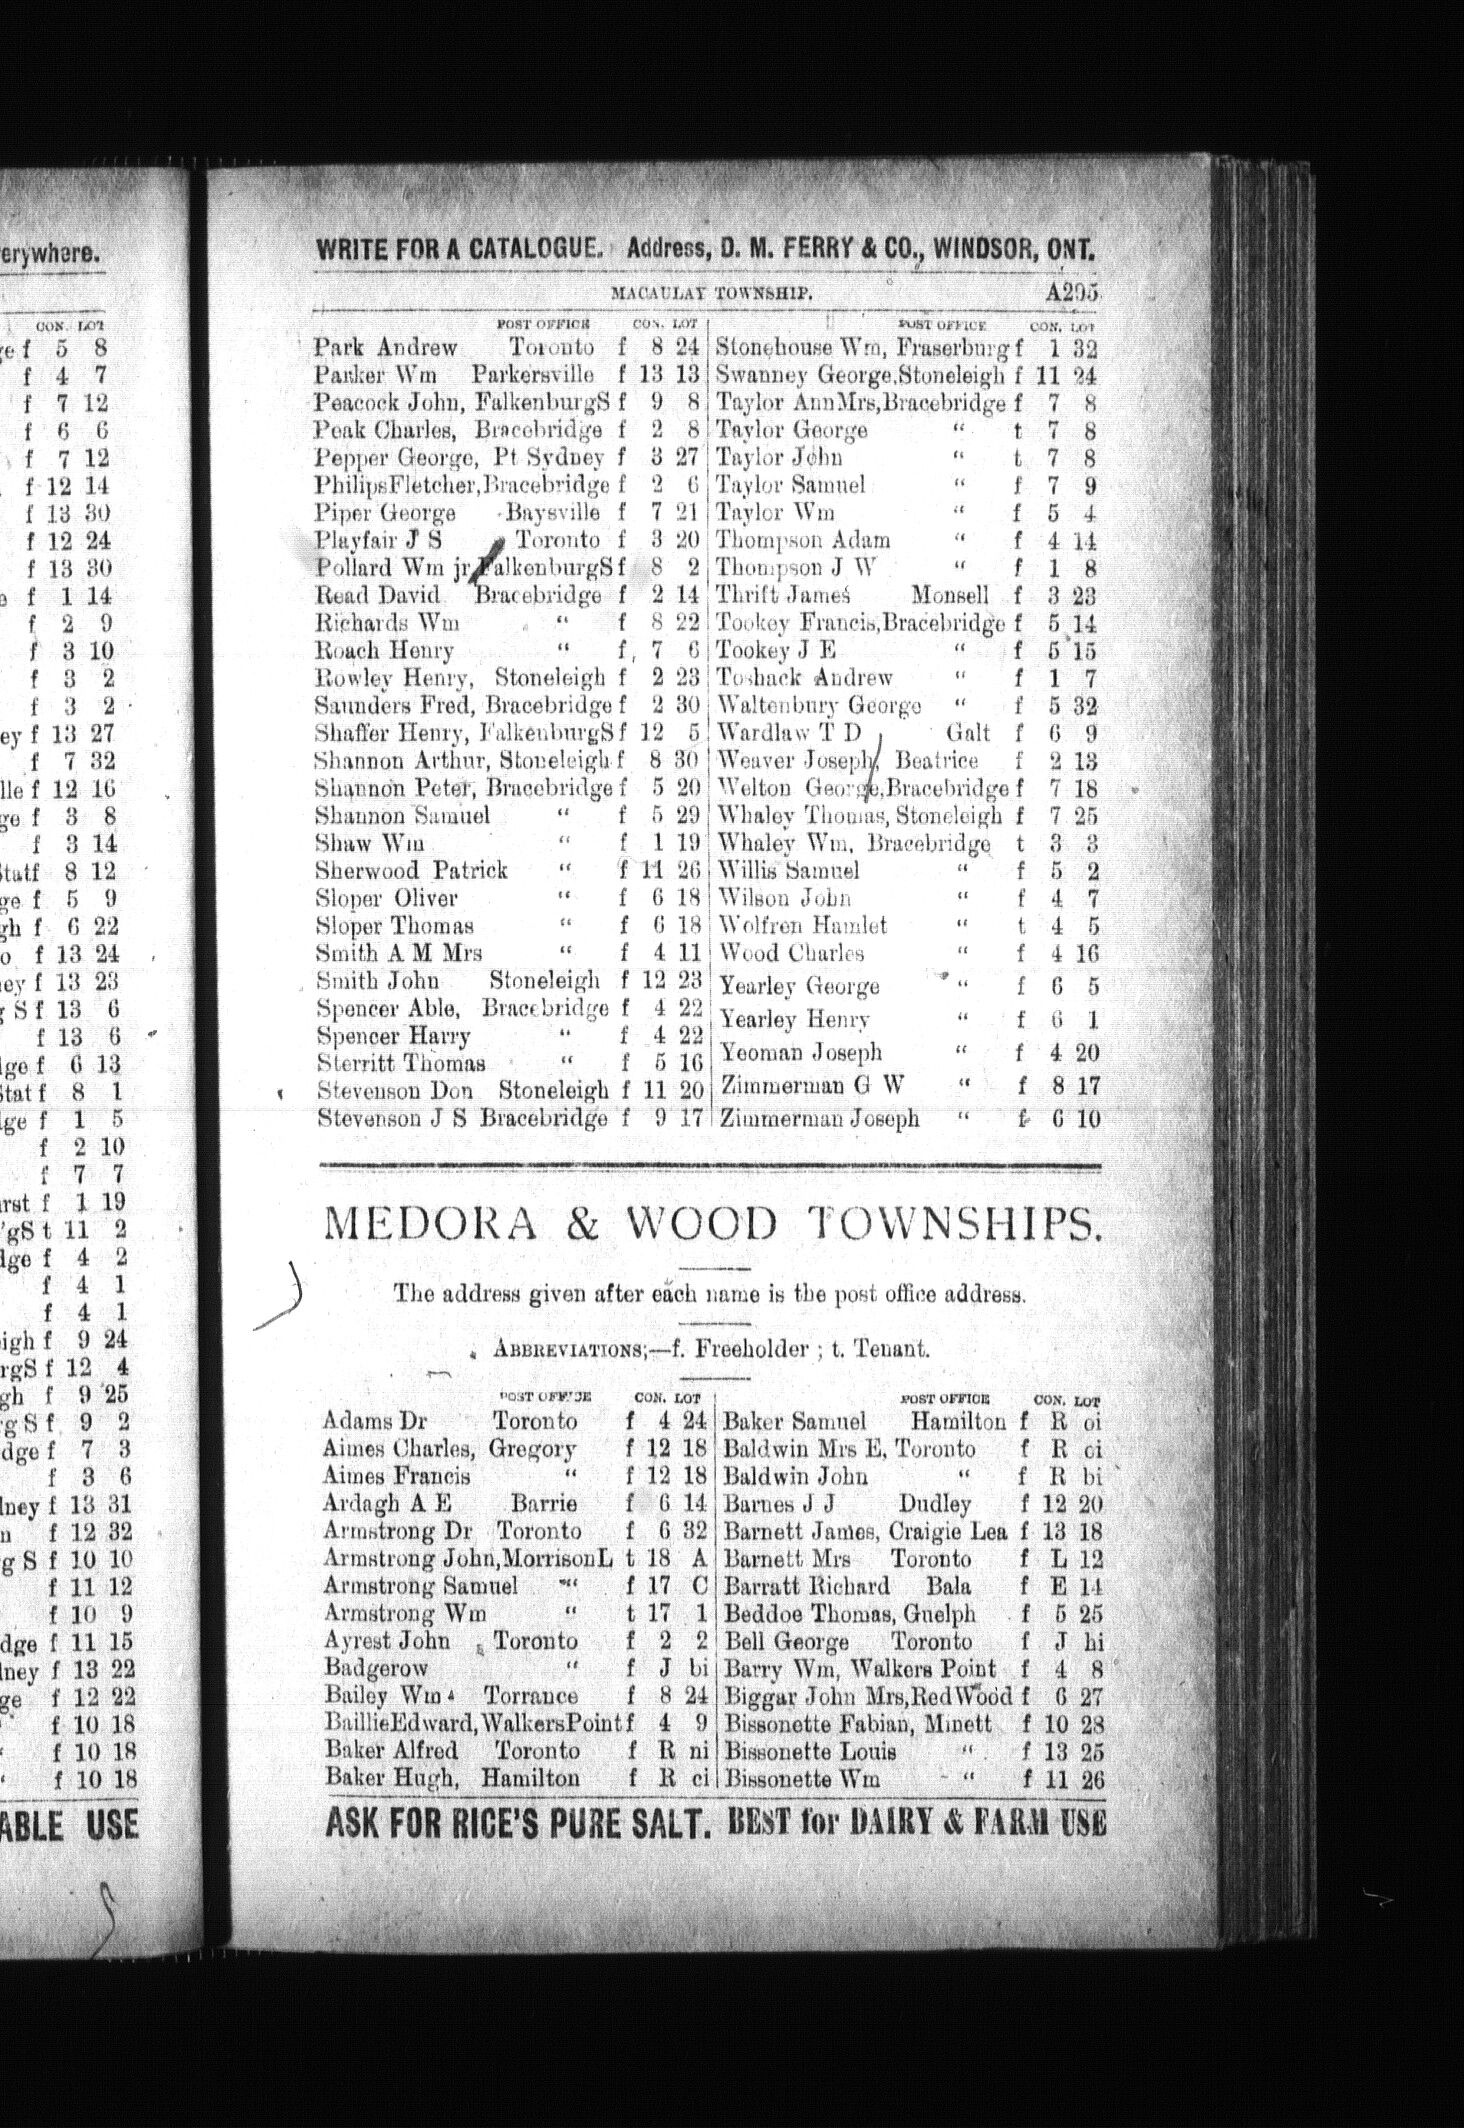 erywhere.
CON. LOT
ge f 5 8
f 4 7
f 7 12
f 6 6
f 7 12
f 12 14
f 13 30
f 12 24
f 13 30
e f 1 14
f 2 9
f 3 10
f 3 2
f 3 2
ey f 13 27
f 7 32
lle f 12 16
ge f 3 8
f 3 14
Statf 8 12
ge f 5 9
gh f 6 22
o f 13 24
ey f 13 23
g S f 13 6
f 13 6
lge f 6 13
Stat f 8 1
lge f 1 5
f 2 10
f 7 7
rst f 1 19
'gS t 11 2
lge f 4 2
f 4 1
f 4 1
igh f 9 24
rgS f 12 4
gh f 9 25
g S f 9 2
dge f 7 3
f 3 6
lney f 13 31
n f 12 32
g S f 10 10
f 11 12
f 10 9
dge f 11 15
lney f 13 22
ge f 12 22
f 10 18
f 10 18
f 10 18
ABLE USE
WRITE FOR A CATALOGUE. Address, D. M. FERRY & CO., WINDSOR, ONT.
MACAULAY TOWNSHIP. A295
POST OFFICE CON. LOT
Park Andrew Toronto f 8 24
Parker Wm Parkersville f 13 13
Peacock John, FalkenburgS f 9 8
Peak Charles, Bracebridge f 2 8
Pepper George, Pt Sydney f 3 27
PhilipsFletcher,Bracebridge f 2 6
Piper George Baysville f 7 21
Playfair J S Toronto f 3 20
Pollard Wm jr,FalkenburgS f 8 2
Read David Bracebridge f 2 14
Richards Wm “ f 8 22
Roach Henry “ f, 7 6
Rowley Henry, Stoneleigh f 2 23
Saunders Fred, Bracebridge f 2 30
Shaffer Henry, FalkenburgS f 12 5
Shannon Arthur, Stoneleigh f 8 30
Shannon Peter, Bracebridge f 5 20
Shannon Samuel “ f 5 29
Shaw Wm “ f 1 19
Sherwood Patrick “ f 11 26
Sloper Oliver “ f 6 18
Sloper Thomas “ f 6 18
Smith A M Mrs “ f 4 11
Smith John Stoneleigh f 12 23
Spencer Able, Bracebridge f 4 22
Spencer Harry “ f 4 22
Sterritt Thomas “ f 5 16
Stevenson Don Stoneleigh f 11 20
Stevenson J S Bracebridge f 9 17
POST OFFICE CON. LOT
Stonehouse Wm, Fraserburg f 1 32
Swanney George,Stoneleigh f 11 24
Taylor AnnMrs,Bracebridge f 7 8
Taylor George “ t 7 8
Taylor John “ t 7 8
Taylor Samuel “ f 7 9
Taylor Wm “ f 5 4
Thompson Adam “ f 4 14
Thompson J W “ f 1 8
Thrift James Monsell f 3 23
Tookey Francis,Bracebridge f 5 14
Tookey J E “ f 5 15
Toshack Andrew “ f 1 7
Waltenbury George “ f 5 32
Wardlaw T D Galt f 6 9
Weaver Joseph, Beatrice f 2 13
Welton George,Bracebridge f 7 18
Whaley Thomas, Stoneleigh f 7 25
Whaley Wm, Bracebridge t 3 3
Willis Samuel “ f 5 2
Wilson John “ f 4 7
Wolfren Hamlet “ t 4 5
Wood Charles “ f 4 16
Yearley George “ f 6 5
Yearley Henry “ f 6 1
Yeoman Joseph “ f 4 20
Zimmerman G W “ f 8 17
Zimmerman Joseph “ f 6 10
MEDORA & WOOD TOWNSHIPS.
The address given after each name is the post office address.
ABBREVIATIONS;—f. Freeholder ; t. Tenant.
POST OFFICE CON. LOT
Adams Dr Toronto f 4 24
Aimes Charles, Gregory f 12 18
Aimes Francis “ f 12 18
Ardagh A E Barrie f 6 14
Armstrong Dr Toronto f 6 32
Armstrong John,MorrisonL t 18 A
Armstrong Samuel “ f 17 C
Armstrong Wm “ t 17 1
Ayrest John Toronto f 2 2
Badgerow “ f J bi
Bailey Wm Torrance f 8 24
BaillieEdward,WalkersPoint f 4 9
Baker Alfred Toronto f R ni
Baker Hugh, Hamilton f R ci
POST OFFICE CON. LOT
Baker Samuel Hamilton f R oi
Baldwin Mrs E, Toronto f R ci
Baldwin John “ f R bi
Barnes J J Dudley f 12 20
Barnett James, Craigie Lea f 13 18
Barnett Mrs Toronto f L 12
Barratt Richard Bala f E 14
Beddoe Thomas, Guelph f 5 25
Bell George Toronto f J hi
Barry Wm, Walkers Point f 4 8
Biggar John Mrs,RedWood f 6 27
Bissonette Fabian, Minett f 10 28
Bissonette Louis “ f 13 25
Bissonette Wm “ f 11 26
ASK FOR RICE'S PURE SALT. BEST for DAIRY & FARM USE